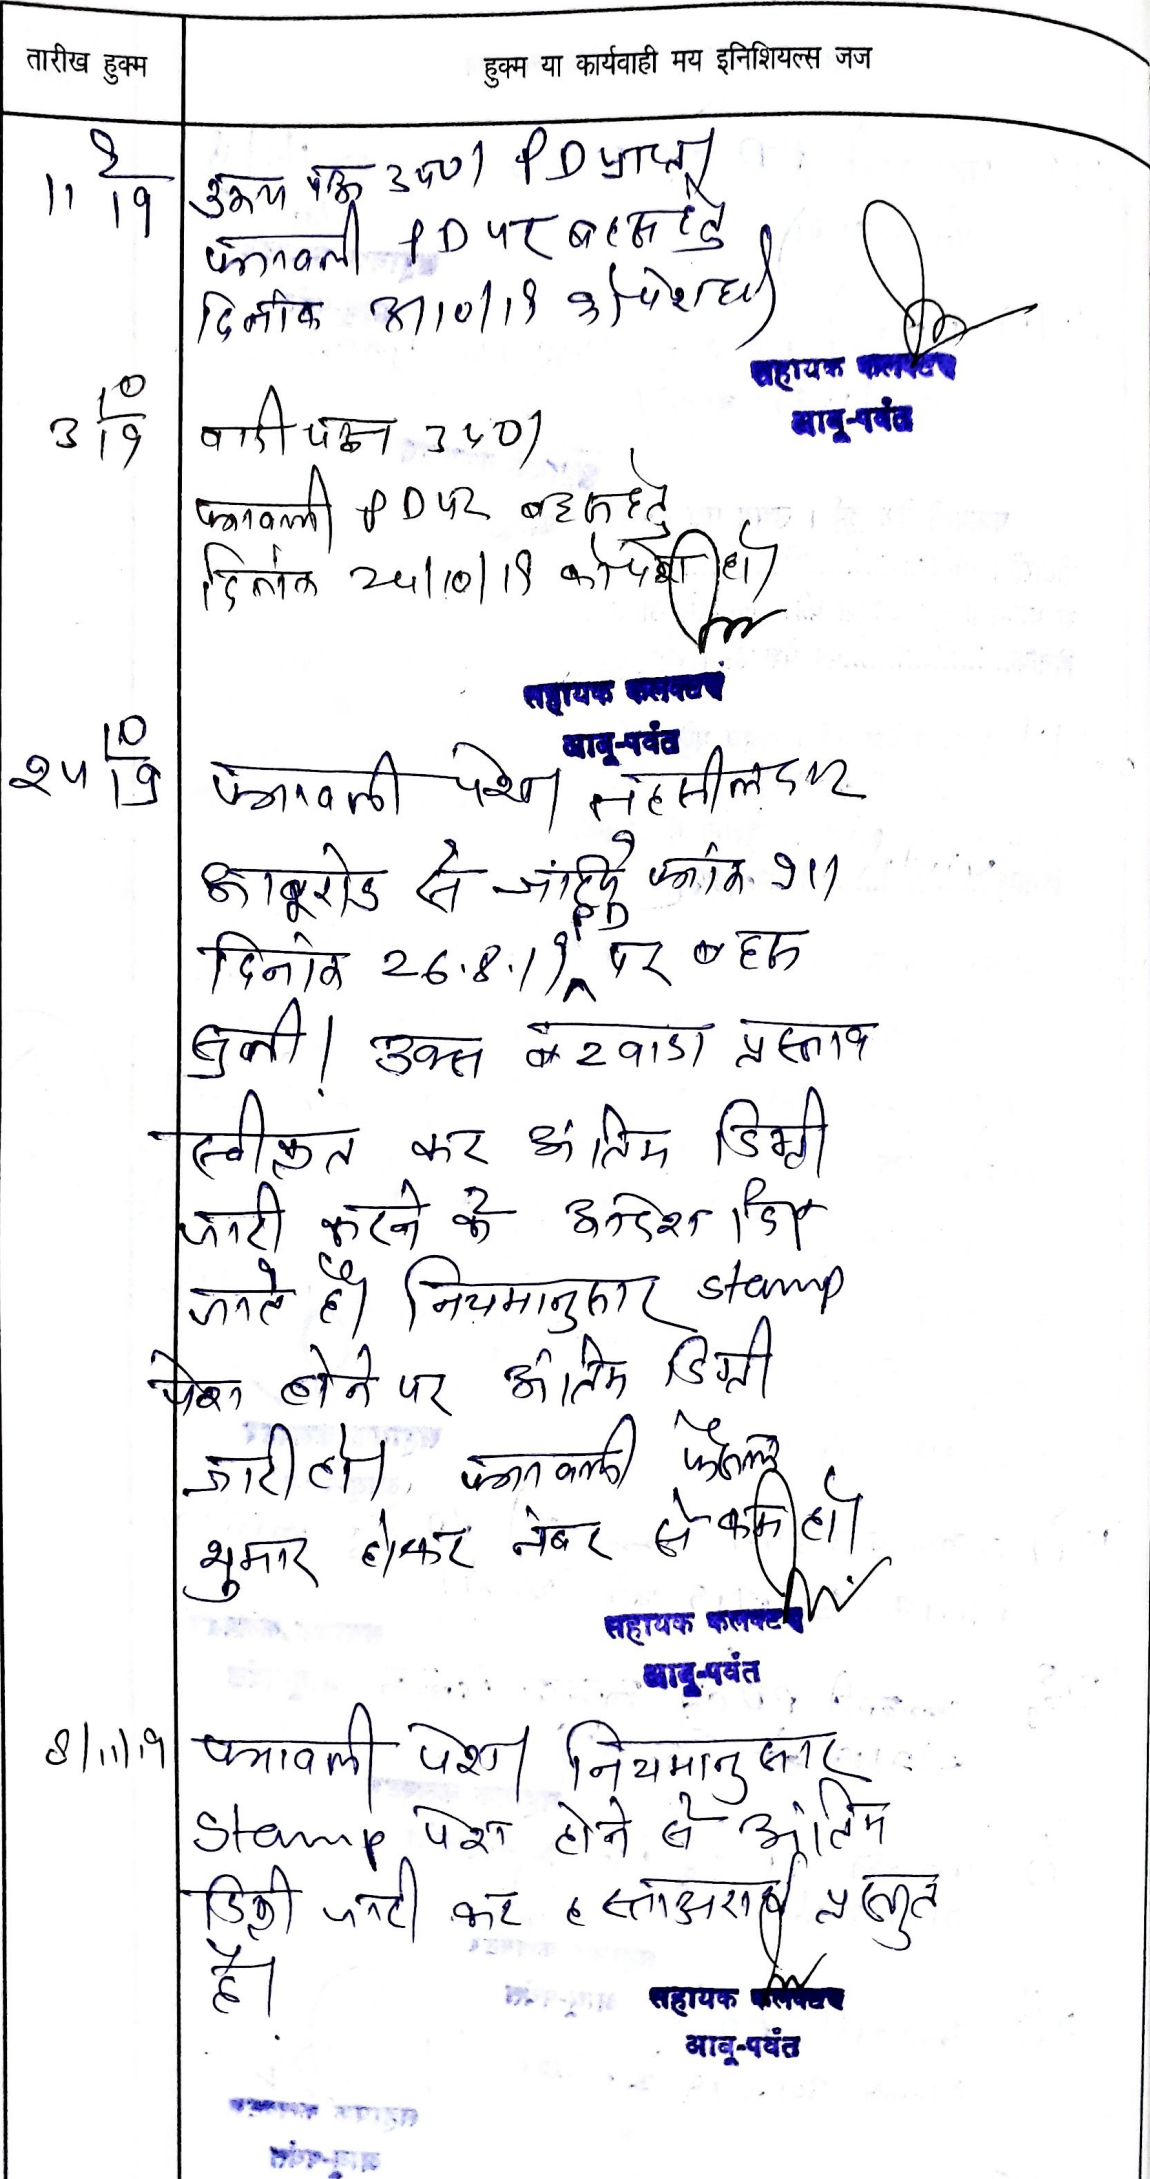 तारीख हुक्म
हुक्म या कार्यवाही मय इनिशियल्स जज
11 9/19
उभय पक्ष उप0। PD प्राप्त।
पत्रावली PD पर बहस हेतु
दिनांक 3/10/19 को पेश हो।
सहायक कलक्टर
आबू-पर्वत
3 10/19
वादी पक्ष उप0।
पत्रावली PD पर बहस हेतु
दिनांक 24/10/19 को पेश हो।
सहायक कलक्टर
आबू-पर्वत
24 10/19
पत्रावली पेश। तहसीलदार
आबूरोड से क्रमांक 911
PD
दिनांक 26.8.19 पर बहस
सुनी। उक्त बंटवाडा प्रस्ताव
स्वीकृत कर अंतिम डिक्री
जारी करने के आदेश दिए
जाते हैं। नियमानुसार stamp
पेश होने पर अंतिम डिक्री
जारी हो। पत्रावली फैसल
शुमार होकर नंबर से कम हो।
सहायक कलक्टर
आबू-पर्वत
8/11/19
पत्रावली पेश। नियमानुसार
Stamp पेश होने से अंतिम
डिक्री जारी कर हस्ताक्षरार्थ प्रस्तुत
है।
सहायक कलक्टर
आबू-पर्वत